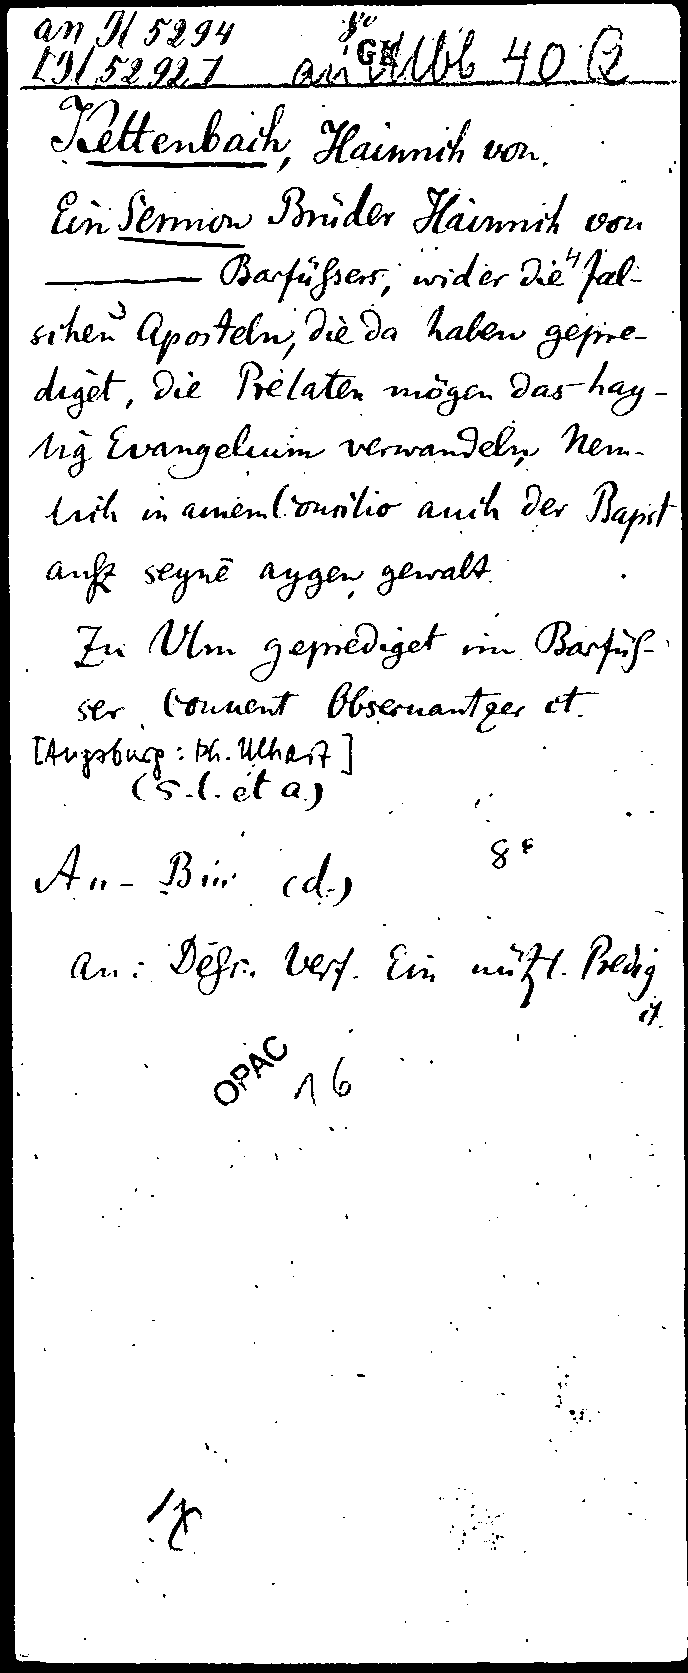 an H 5294 8°
GK
[H 52927] an Ulbb 40 Q
Kettenbach, Hainrich von.
Ein Sermon Brüder Hainrich von
——— Barfüßers, wider die 4 fal-
schen 3 Aposteln, die da haben gepre-
diget, die Prelaten mögen das hay-
lig Evangelium verwandeln, Nem-
lich in ainem Concilio auch der Bapst
außz seynē aygen gewalt.
Zu Ulm geprediget im Barfüß-
ser Conuent Obseruantzer et.
[Augsburg: Ph. Ulhart]
(s. l. et a.)
8°
An- Bin (d.)
an: Ders. Verf. Ein nützl. Predig
et.
OPAC 16